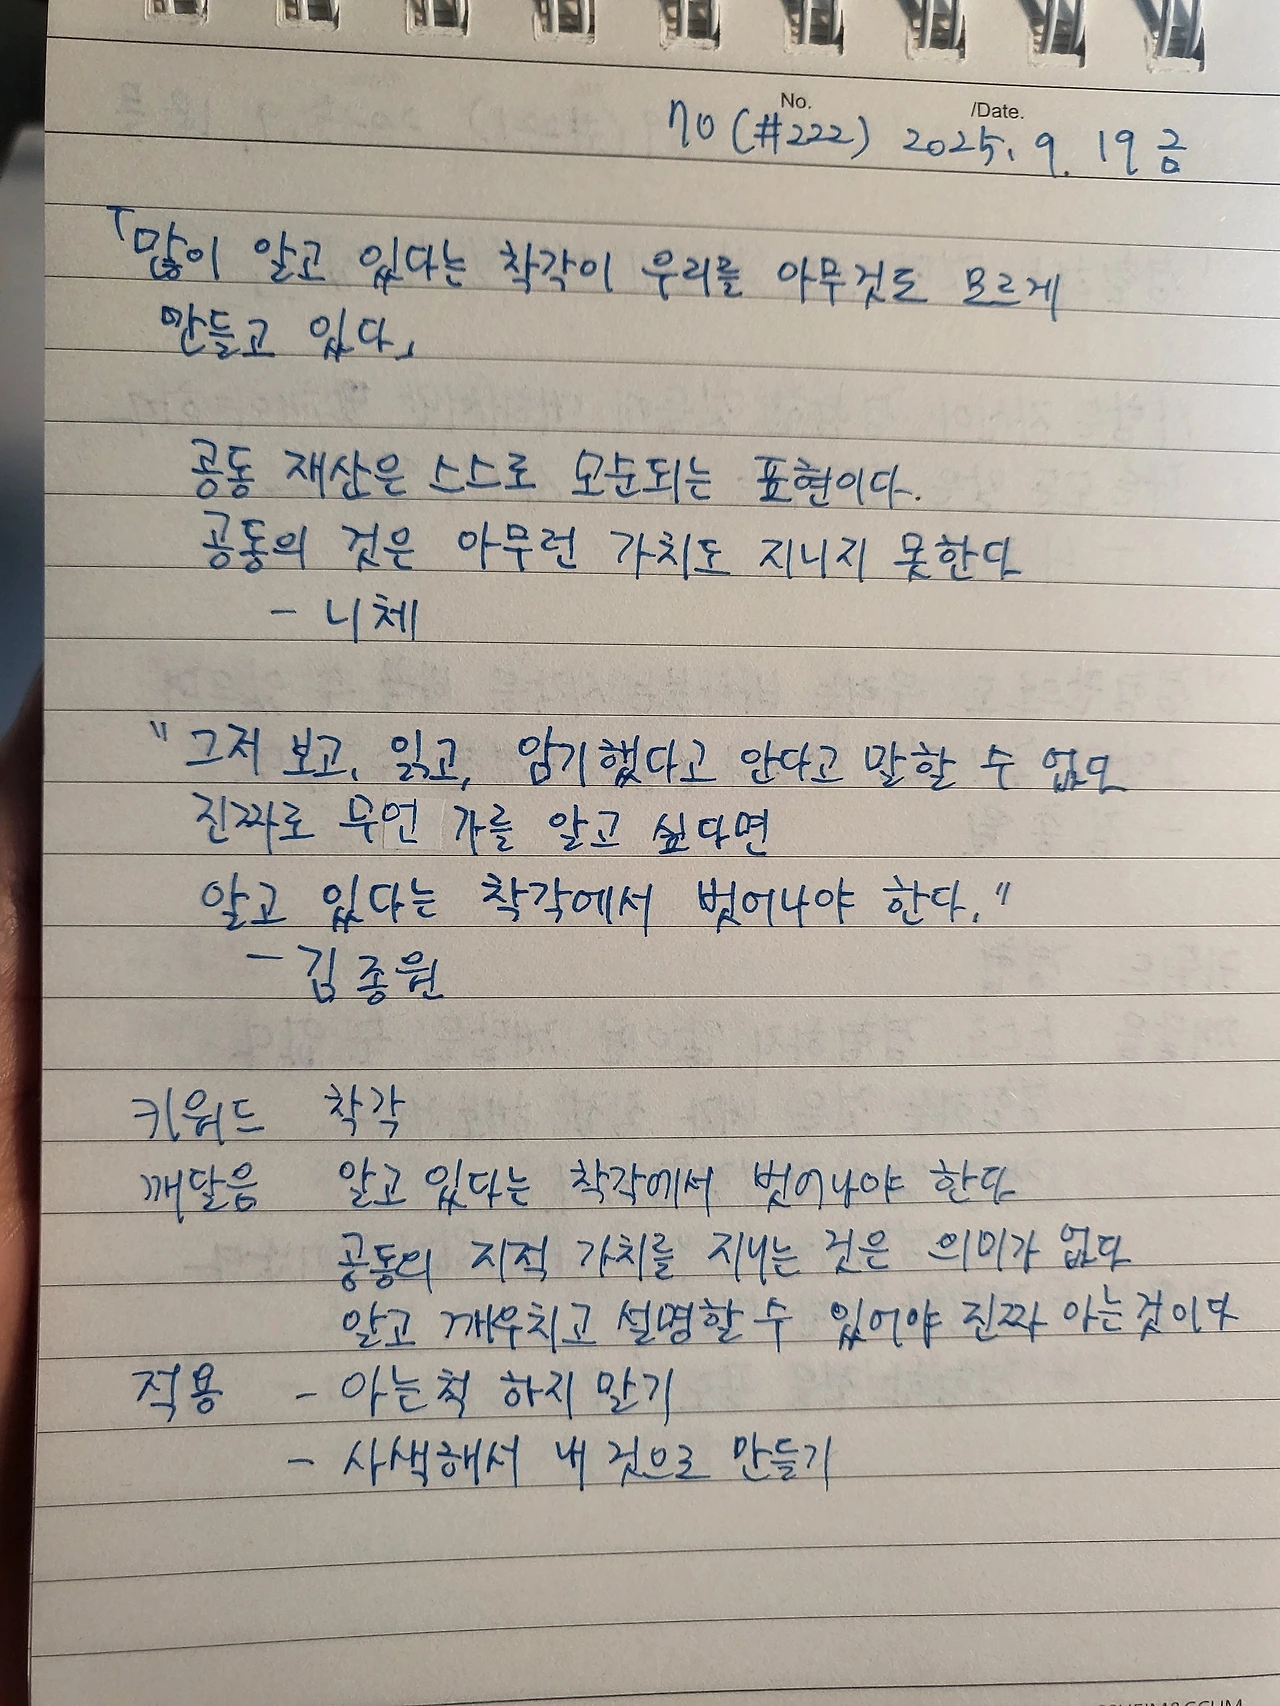 No. /Date.
70 (#222) 2025. 9. 19 금
「많이 알고 있다는 착각이 우리를 아무것도 모르게
만들고 있다」
공동 재산은 스스로 모순되는 표현이다.
공동의 것은 아무런 가치도 지니지 못한다
- 니체
"그저 보고, 읽고, 암기했다고 안다고 말할 수 없으
진짜로 무언 가를 알고 싶다면
알고 있다는 착각에서 벗어나야 한다."
- 김종원
키워드 착각
깨달음 알고 있다는 착각에서 벗어나야 한다
공동의 지적 가치를 지니는 것은 의미가 없다
알고 깨우치고 설명할 수 있어야 진짜 아는것이다
적용 - 아는척 하지 말기
- 사색해서 내 것으로 만들기